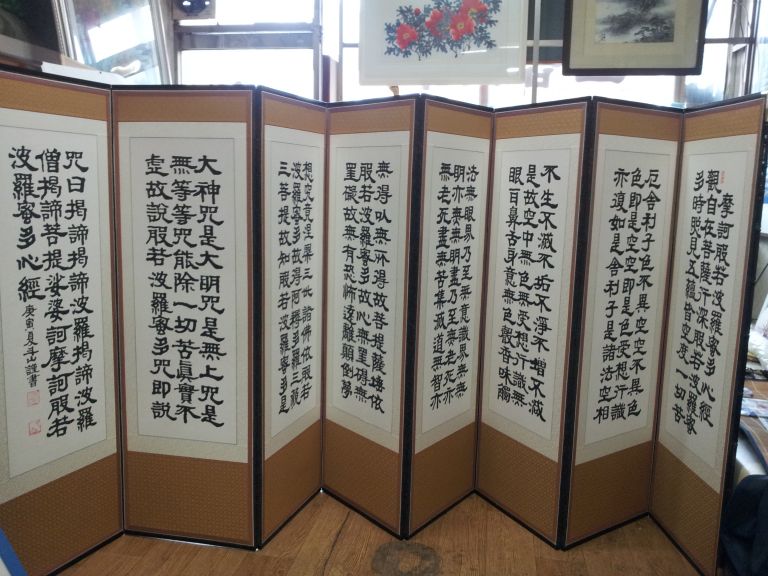 摩訶般若波羅蜜多心經
觀自在菩薩行深般若波羅蜜
多時照見五蘊皆空度一切苦
厄舍利子色不異空空不異色
色即是空空即是色受想行識
亦復如是舍利子是諸法空相
不生不滅不垢不淨不增不減
是故空中無色無受想行識無
眼耳鼻舌身意無色聲香味觸
法無眼界乃至無意識界無無
明亦無無明盡乃至無老死亦
無老死盡無苦集滅道無智亦
無得以無所得故菩提薩埵依
般若波羅蜜多故心無罣礙無
罣礙故無有恐怖遠離顛倒夢
想究竟涅槃三世諸佛依般若
波羅蜜多故得阿耨多羅三藐
三菩提故知般若波羅蜜多是
大神咒是大明咒是無上咒是
無等等咒能除一切苦真實不
虛故說般若波羅蜜多咒即說
咒曰揭諦揭諦波羅揭諦波羅
僧揭諦菩提娑婆訶摩訶般若
波羅蜜多心經 庚寅夏 山謹書